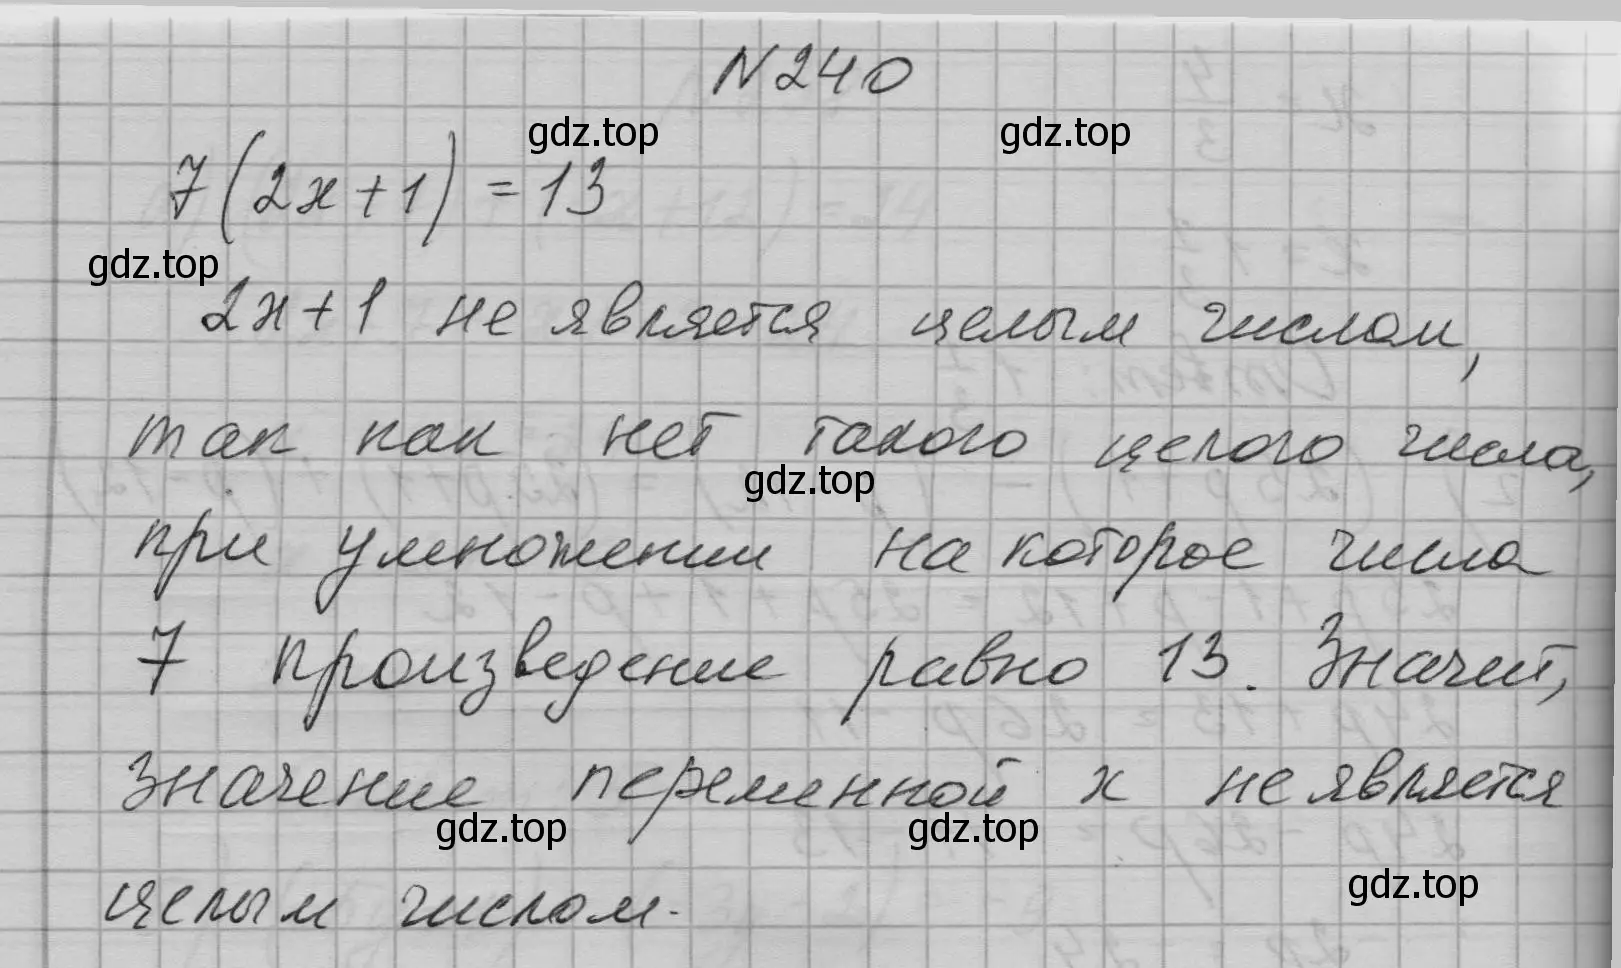 N240
gdz.top gdz.top
7(2x+1) = 13
gdz.top
2x+1 не является целым числом,
так как нет такого целого числа,
gdz.top
при умножении на которое числа
7 произведение равно 13. Значит,
значение переменной x не является
gdz.top gdz.top
целым числом.
gdz.top